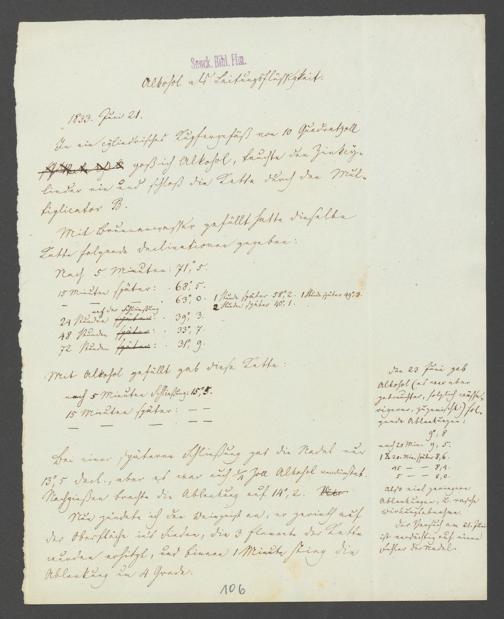 Senck. Bibl. Ffm.
Alkohol als Leitungsflüssigkeit.
1833. Juni 21.
In ein cylindrisches Kupfergefäß von 10 Quadratzoll
goß ich Alkohol, tauchte den Zinkcy-
linder ein und schloß die Kette durch den Mul-
tiplicator B.
Mit Brunnenwasser gefüllt hatte dieselbe
Kette folgende Declinationen gegeben:
Nach 5 Minuten: 71°,5.
15 Minuten später: 68°,5.
63°,0. 1 Stunde später 58°,2. 1 Stunde später 49°,3.
2 Stunden später 40°,1.
nach der Schließung
24 Stunden später: 39°,3.
48 Stunden später: 33°,7.
72 Stunden später: 31°,9.
Mit Alkohol gefüllt gab diese Kette:
nach 5 Minuten Schließung: 15°,5.
15 Minuten später: — —
Bei einer späteren Schließung gab die Nadel nur
13°,5 Decl., aber es war auch Zoll Alkohol verdunstet.
Nachgießen brachte die Ablenkung auf 14°,2.
Nun zündete ich den Weingeist an, er gerieth auf
der Oberfläche ins Sieden, die 3 Elemente der Kette
wurden erhitzt, und binnen 1 Minute stieg die
Ablenkung um 4 Grade.
Den 23 Juni gab
Alkohol (es war aber
gebrauchter, folglich wässe-
rigerer, zugemischt) fol-
gende Ablenkungen:
9°,8
nach 20 Min. 9,5.
1 St. 20 Min. später 8,6.
15 — — 8,1.
5 — — 8,0.
Also viel geringere
Ablenkungen, u. rasche
Wirkungsabnahme.
Der Versuch am 21. Juni
ist verdächtig auf einen
Fehler der Nadel.
106